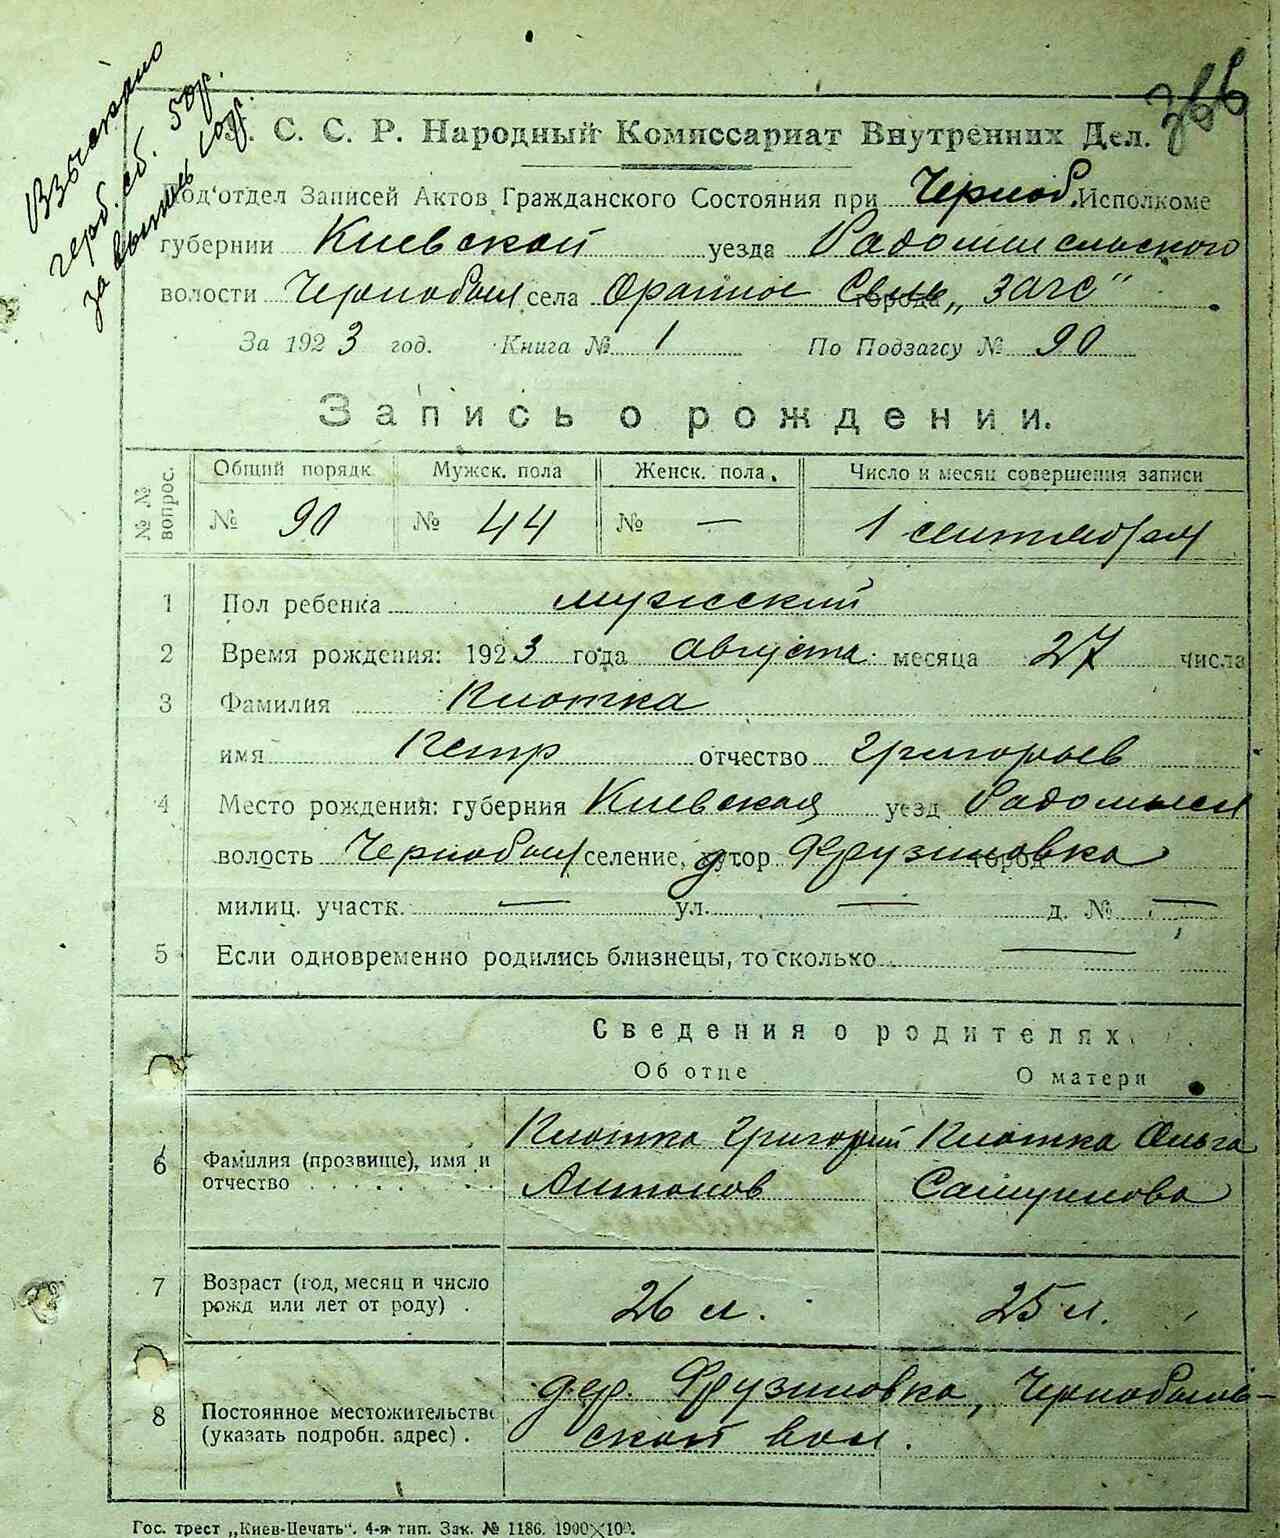 366
Взыскано
герб. сб. 50р.
за выпись 10р.
У. С. С. Р. Народный Комиссариат Внутренних Дел.
Под'отдел Записей Актов Гражданского Состояния при Черноб. Исполкоме
губернии Киевской уезда Радомысльского
волости Чернобыл села Оранное города „ЗАГС"
За 1923 год. Книга № 1 По Подзагсу № 90
Запись о рождении.
№ № вопрос. Общий порядк. Мужск. пола Женск. пола. Число и месяц совершения записи
№ 90 № 44 № — 1 сентября
1 Пол ребенка мужеский
2 Время рождения: 1923 года августа месяца 27 числа
3 Фамилия Клотка
имя Петр отчество Григорьев
4 Место рождения: губерния Киевская уезд Радомысл
волость Чернобыл селение, хутор Фрузиновка город
милиц. участк. — ул. — д. № —
5 Если одновременно родились близнецы, то сколько —
Сведения о родителях
Об отце О матери
6 Фамилия (прозвище), имя и отчество Клотка Григорий Клотка Ольга
Антонов
7 Возраст (год, месяц и число рожд или лет от роду) . 26 л. 25 л.
8 Постоянное местожительство (указать подробн. адрес) . дер. Фрузиновка, Чернобыль-
ской вол.
Гос. трест „Киев-Печать". 4-я тип. Зак. № 1186. 1900×100.